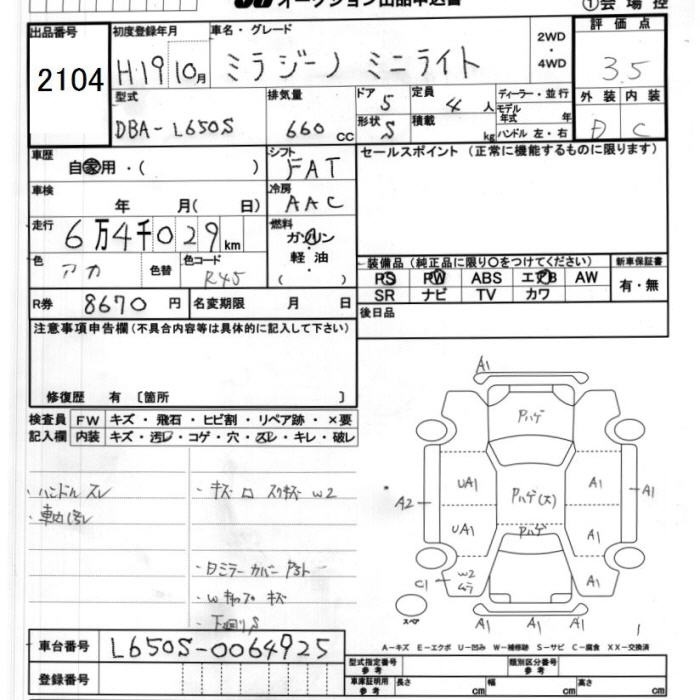 オークション出品申込書 ①会場控
出品番号 初度登録年月 車名・グレード 2WD 評価点
2104 H19 10月 ミラジーノ ミニライト ・4WD 3.5
型式 排気量 ドア 5 定員 4人 ディーラー・並行 外装 内装
DBA-L650S 660cc 形状 S 積載 kg モデル年式 年 ハンドル 左・右 D C
車歴 シフト セールスポイント (正常に機能するものに限ります)
自家用・( ) FAT
車検 冷房
年 月( 日) AAC
走行 燃料
6万4千029km ガソリン
色 色コード 軽油
アカ 色替 R45 ( )
装備品 (純正品に限り○をつけてください) 新車保証書
PS PW ABS エアB AW 有・無
SR ナビ TV カワ
R券 8670円 名変期限 月 日 後日品
注意事項申告欄(不具合内容等は具体的に記入して下さい)
修復歴 有 〔箇所 〕
検査員 FW キズ・飛石・ヒビ割・リペア跡・×要
記入欄 内装 キズ・汚レ・コゲ・穴・スレ・キレ・破レ
・ハンドル スレ
・車内汚レ
・キズ ロ スリキズ W2
・ロミラーカバー
・Wキャップ キズ
・下廻りS
A1
Pハゲ
UA1 Pハゲ(大) A1 A1
A2
UA1 Pハゲ A1
C1 W2 ムラ A1
スペア A1 A1 A1 1
A-キズ E-エクボ U-凹み W-補修跡 S-サビ C-腐食 XX-交換済
車台番号 L650S-0064925
登録番号
型式指定番号 参考 類別区分番号 参考
車庫証明用 参考 長さ cm 幅 cm 高さ cm